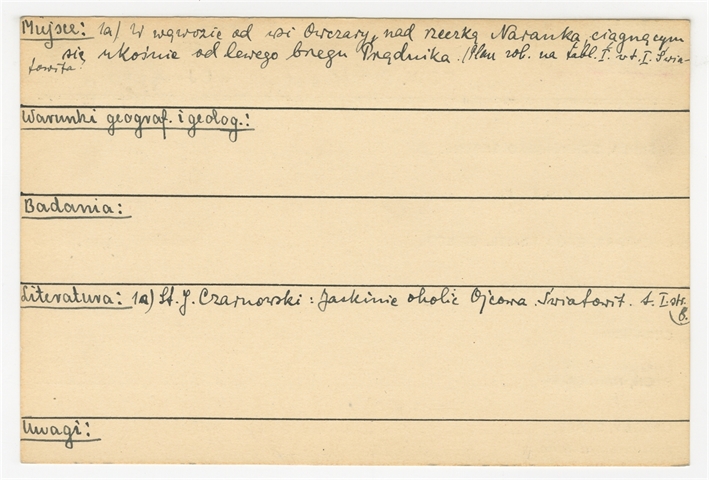 Miejsce: 1a) W wąwozie od wsi Owczary, nad rzeczką Naranką, ciągnącym
się ukośnie od lewego brzegu Prądnika. (Plan rob. na tabl. I. w t. I. Świa-
towita
Warunki geograf. i geolog.:
Badania:
Literatura: 1a) St. J. Czarnowski: Jaskinie okolic Ojcowa. Światowit. t. I. str.
6.
Uwagi: